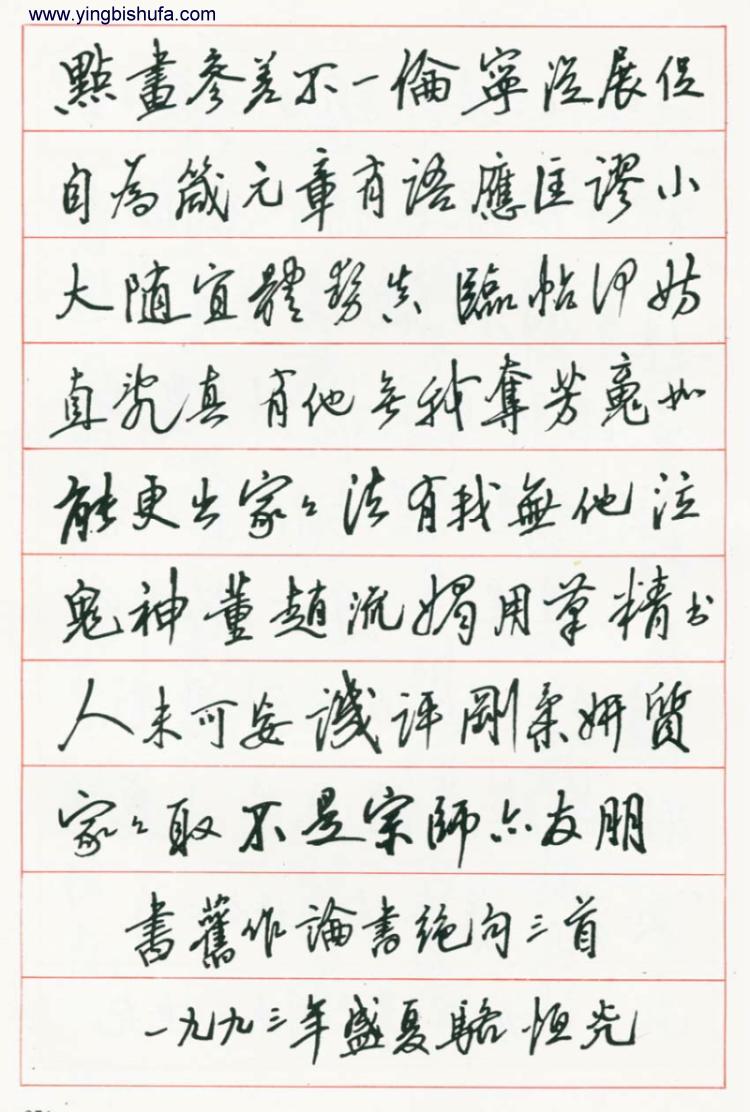 www.yingbishufa.com
點畫參差不一倫寧從展促
自為箴元章有語應匡謬小
大随宜體勢真臨帖何妨
直究真有他無我奪芳魂如
能更出家々法有我無他泣
鬼神董趙流媚用筆精書
人未可妄譏評剛柔妍質
家々取不是宗師亦友朋
書舊作論書絶句三首
一九九三年盛夏駱恒光